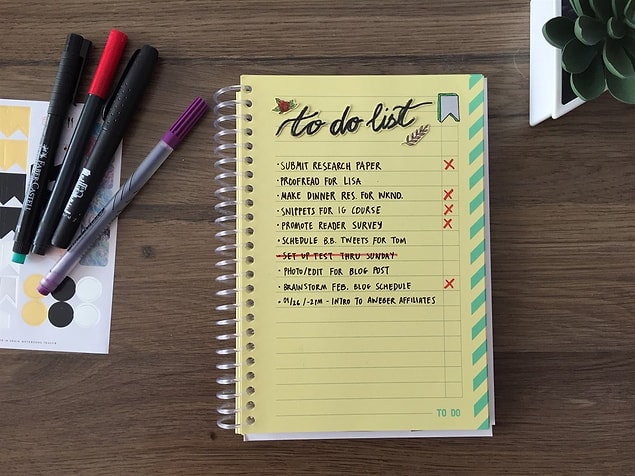 to do list
· SUBMIT RESEARCH PAPER X
· PROOFREAD FOR LISA
· MAKE DINNER RES. FOR WKND. X
· SNIPPETS FOR IG COURSE X
· PROMOTE READER SURVEY X
· SCHEDULE B.B. TWEETS FOR TOM
· SET UP TEST THRU SUNDAY
· PHOTO/EDIT FOR BLOG POST
· BRAINSTORM FEB. BLOG SCHEDULE X
· 01/26 /-2PM - INTRO TO AWEBER AFFILIATES
TO DO
FABER-CASTELL